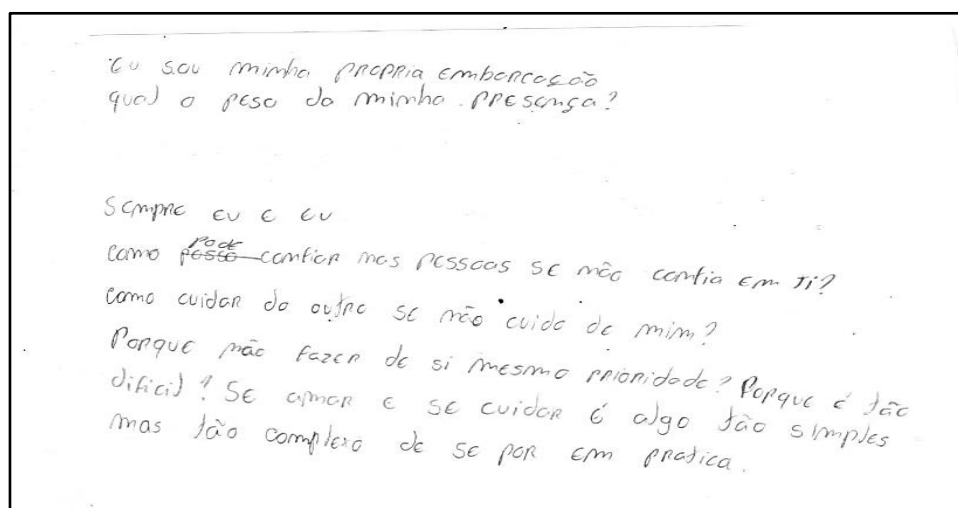 Eu sou minha propria embarcação
qual o peso da minha presença?
Sempre eu e eu
como pode posso confiar nas pessoas se não confia em Ti?
como cuidar do outro se não cuido de mim?
Porque não fazer de si mesmo prioridade? Porque é tão
dificil? Se amar e se cuidar é algo tão simples
mas tão complexo de se por em pratica.